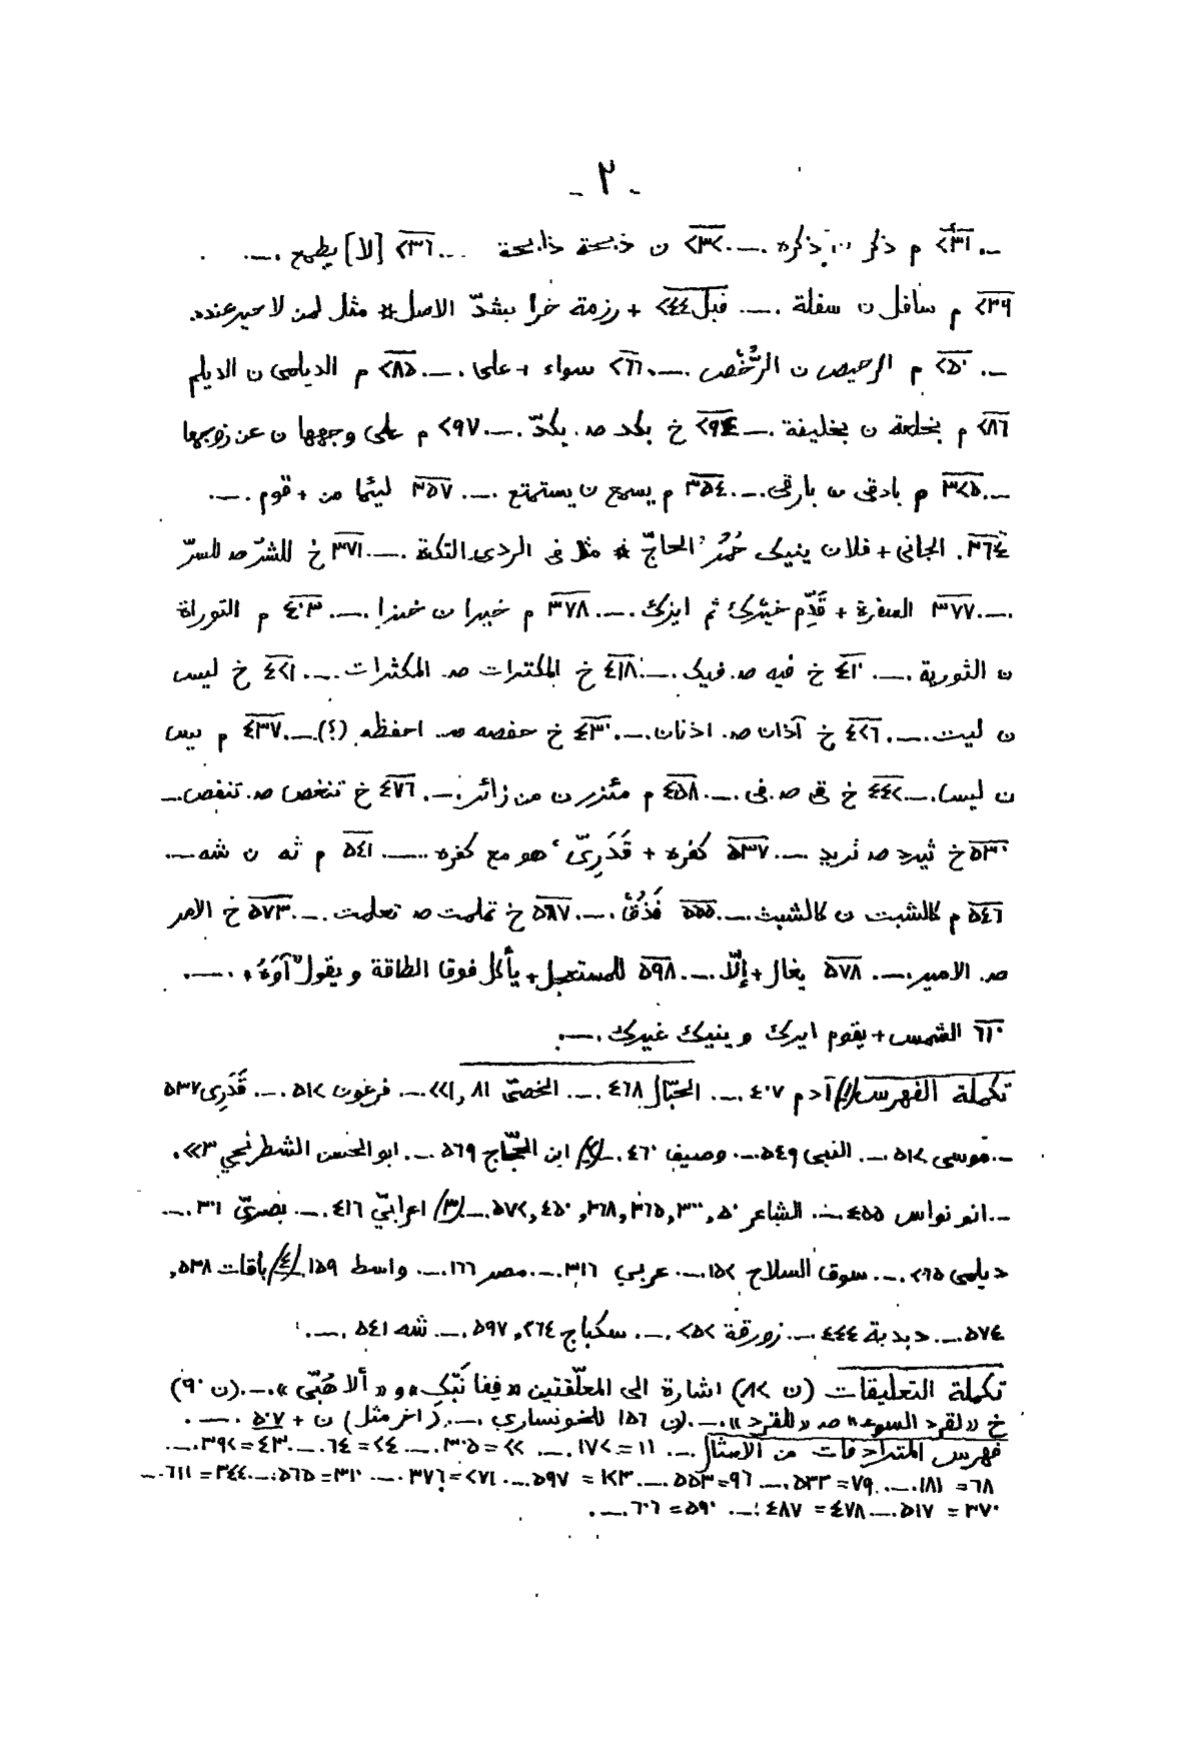 - ٢ -
ـ.ـ ٢٣١ م ذكر ن بذكره .ـ. ٢٣٢ ن ذبحة ذابحة ... ٢٣٦ [لا] يطمع .ـ.
٢٣٩ م سافل ن سفلة .ـ. قبل ٢٤٤ + رزمة خرا بشدّ الاصل * مثل لمن لا خير عنده.
ـ.ـ ٢٥٠ م الرخيص ن الرُّخْص .ـ. ٢٦٦ سواء + على .ـ. ٢٨٥ م الديلمى ن الديلم
٢٨٦ م بخلعة ن بخليفة .ـ. ٢٩٤ خ بكد صـ. يكدّ .ـ. ٢٩٧ م على وجهها ن عن زوجها
ـ.ـ ٣٢٥ م بادقى ن بارقى .ـ. ٣٥٤ م يسمع ن يستمتع .ـ. ٣٥٧ ليثما من + قوم .ـ.
٣٦٤ . الجانى + فلان ينيك حُمُرَ الحاجّ * مثل فى الردى التكة .ـ. ٣٧١ خ للشرّ صـ للسرّ
.ـ. ٣٧٧ السفرة + قَدِّم خيرك ثم ايرك .ـ. ٣٧٨ م خبرا ن خبزا .ـ. ٤٠٣ م التوراة
ن الثورية .ـ. ٤١٠ خ فيه صـ. فيك .ـ. ٤١٨ خ المكترات صـ. المكثرات .ـ. ٤٢١ خ ليس
ن ليت .ـ. ٤٢٦ خ آذان صـ. اذنان .ـ. ٤٣٠ خ حفصه صـ. احفظه (؟) .ـ. ٤٣٧ م بيس
ن ليسا .ـ. ٤٤٢ خ قى صـ. فى .ـ. ٤٥٨ م مئزر ن من زائر .ـ. ٤٧٦ خ تنغص صـ. تنفص .ـ
٥٣٠ خ ثيرد صـ تريد .ـ. ٥٣٧ كفره + قَدَرِىّ، هو مع كفره .ـ. ٥٤١ م ثه ن شه .ـ.
٥٤٦ م كالشبت ن كالشبث .ـ. ٥٥٥ فَذُقْ .ـ. ٥٦٧ خ تملمت صـ تعلمت .ـ. ٥٧٣ خ الامر
صـ. الامير .ـ. ٥٧٨ يغال + إلّا .ـ. ٥٩٨ للمستعجل + يأكل فوق الطاقة ويقول "آوَهْ" .ـ.
٦١٠ الشمس + يقوم ايرك وينيك غيرك .ـ.
تكملة الفهرس /١/ آدم ٤٠٧ .ـ. الحبّال ٤٦٨ .ـ. الخصىّ ٨١, ٢٢١ .ـ. فرعون ٥١٢ .ـ. قَدَرِى ٥٣٧
.ـ. موسى ٥١٢ .ـ. النبى ٥٤٩ .ـ. وصيف ٤٦٠ .ـ. /٢/ ابن الحجّاج ٥٦٩ .ـ. ابو الحسن الشطرنجي ٢٢٣.
.ـ. ابو نواس ٤٥٥ .ـ. الشاعر ٥٠, ٣٠٠, ٣٦٥, ٣٦٨, ٤٥٠, ٥٧٢ .ـ. /٣/ اعرابيّ ٤١٦ .ـ. بصريّ ٣٠١ .ـ.
ديلمى ٢٦٥ .ـ. سوق السلاح ١٥٢ .ـ. عربي ٣١٦ .ـ. مصر ١٦٦ .ـ. واسط ١٥٩ /٤/ باقات ٥٣٨,
٥٧٤ .ـ. دبدبة ٤٤٤ .ـ. زورقة ٢٥٢ .ـ. سكباج ٢٦٤, ٥٩٧ .ـ. شه ٥٤١ .ـ.
تكملة التعليقات (ن ٨٢) اشارة الى المعلّقتين «قفا نَبْكِ» و «ألا هُبّى» .ـ. (ن ٩٠)
خ «لقرد السوء» صـ «للقرد» .ـ. (ن ١٥٦ للخونساري .ـ. (اخر مثل) ن + ٥٠٧ .ـ.
فهرس المترادفات من الامثال .ـ. ١١ = ١٧٢ .ـ. ٢٢ = ٣٠٥ .ـ. ٢٤ = ٦٤ .ـ. ٤٣ = ٣٩٢ .ـ.
٦٨ = ١٨١ .ـ. ٧٩ = ٥٣٣ .ـ. ٩٦ = ٥٥٣ .ـ. ١٢٣ = ٥٩٧ .ـ. ٢٧١ = ٣٧٦ .ـ. ٣١٠ = ٥٦٥ .ـ. ٣٤٤ = ٦١١ .ـ.
٣٧٠ = ٥١٧ .ـ. ٤٧٨ = ٤٨٧ .ـ. ٥٩٠ = ٦٠٦ .ـ.